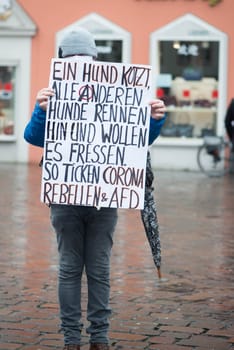 EIN HUND KOTZT,
ALLE ANDEREN
HUNDE RENNEN
HIN UND WOLLEN
ES FRESSEN.
SO TICKEN CORONA
REBELLEN & AFD